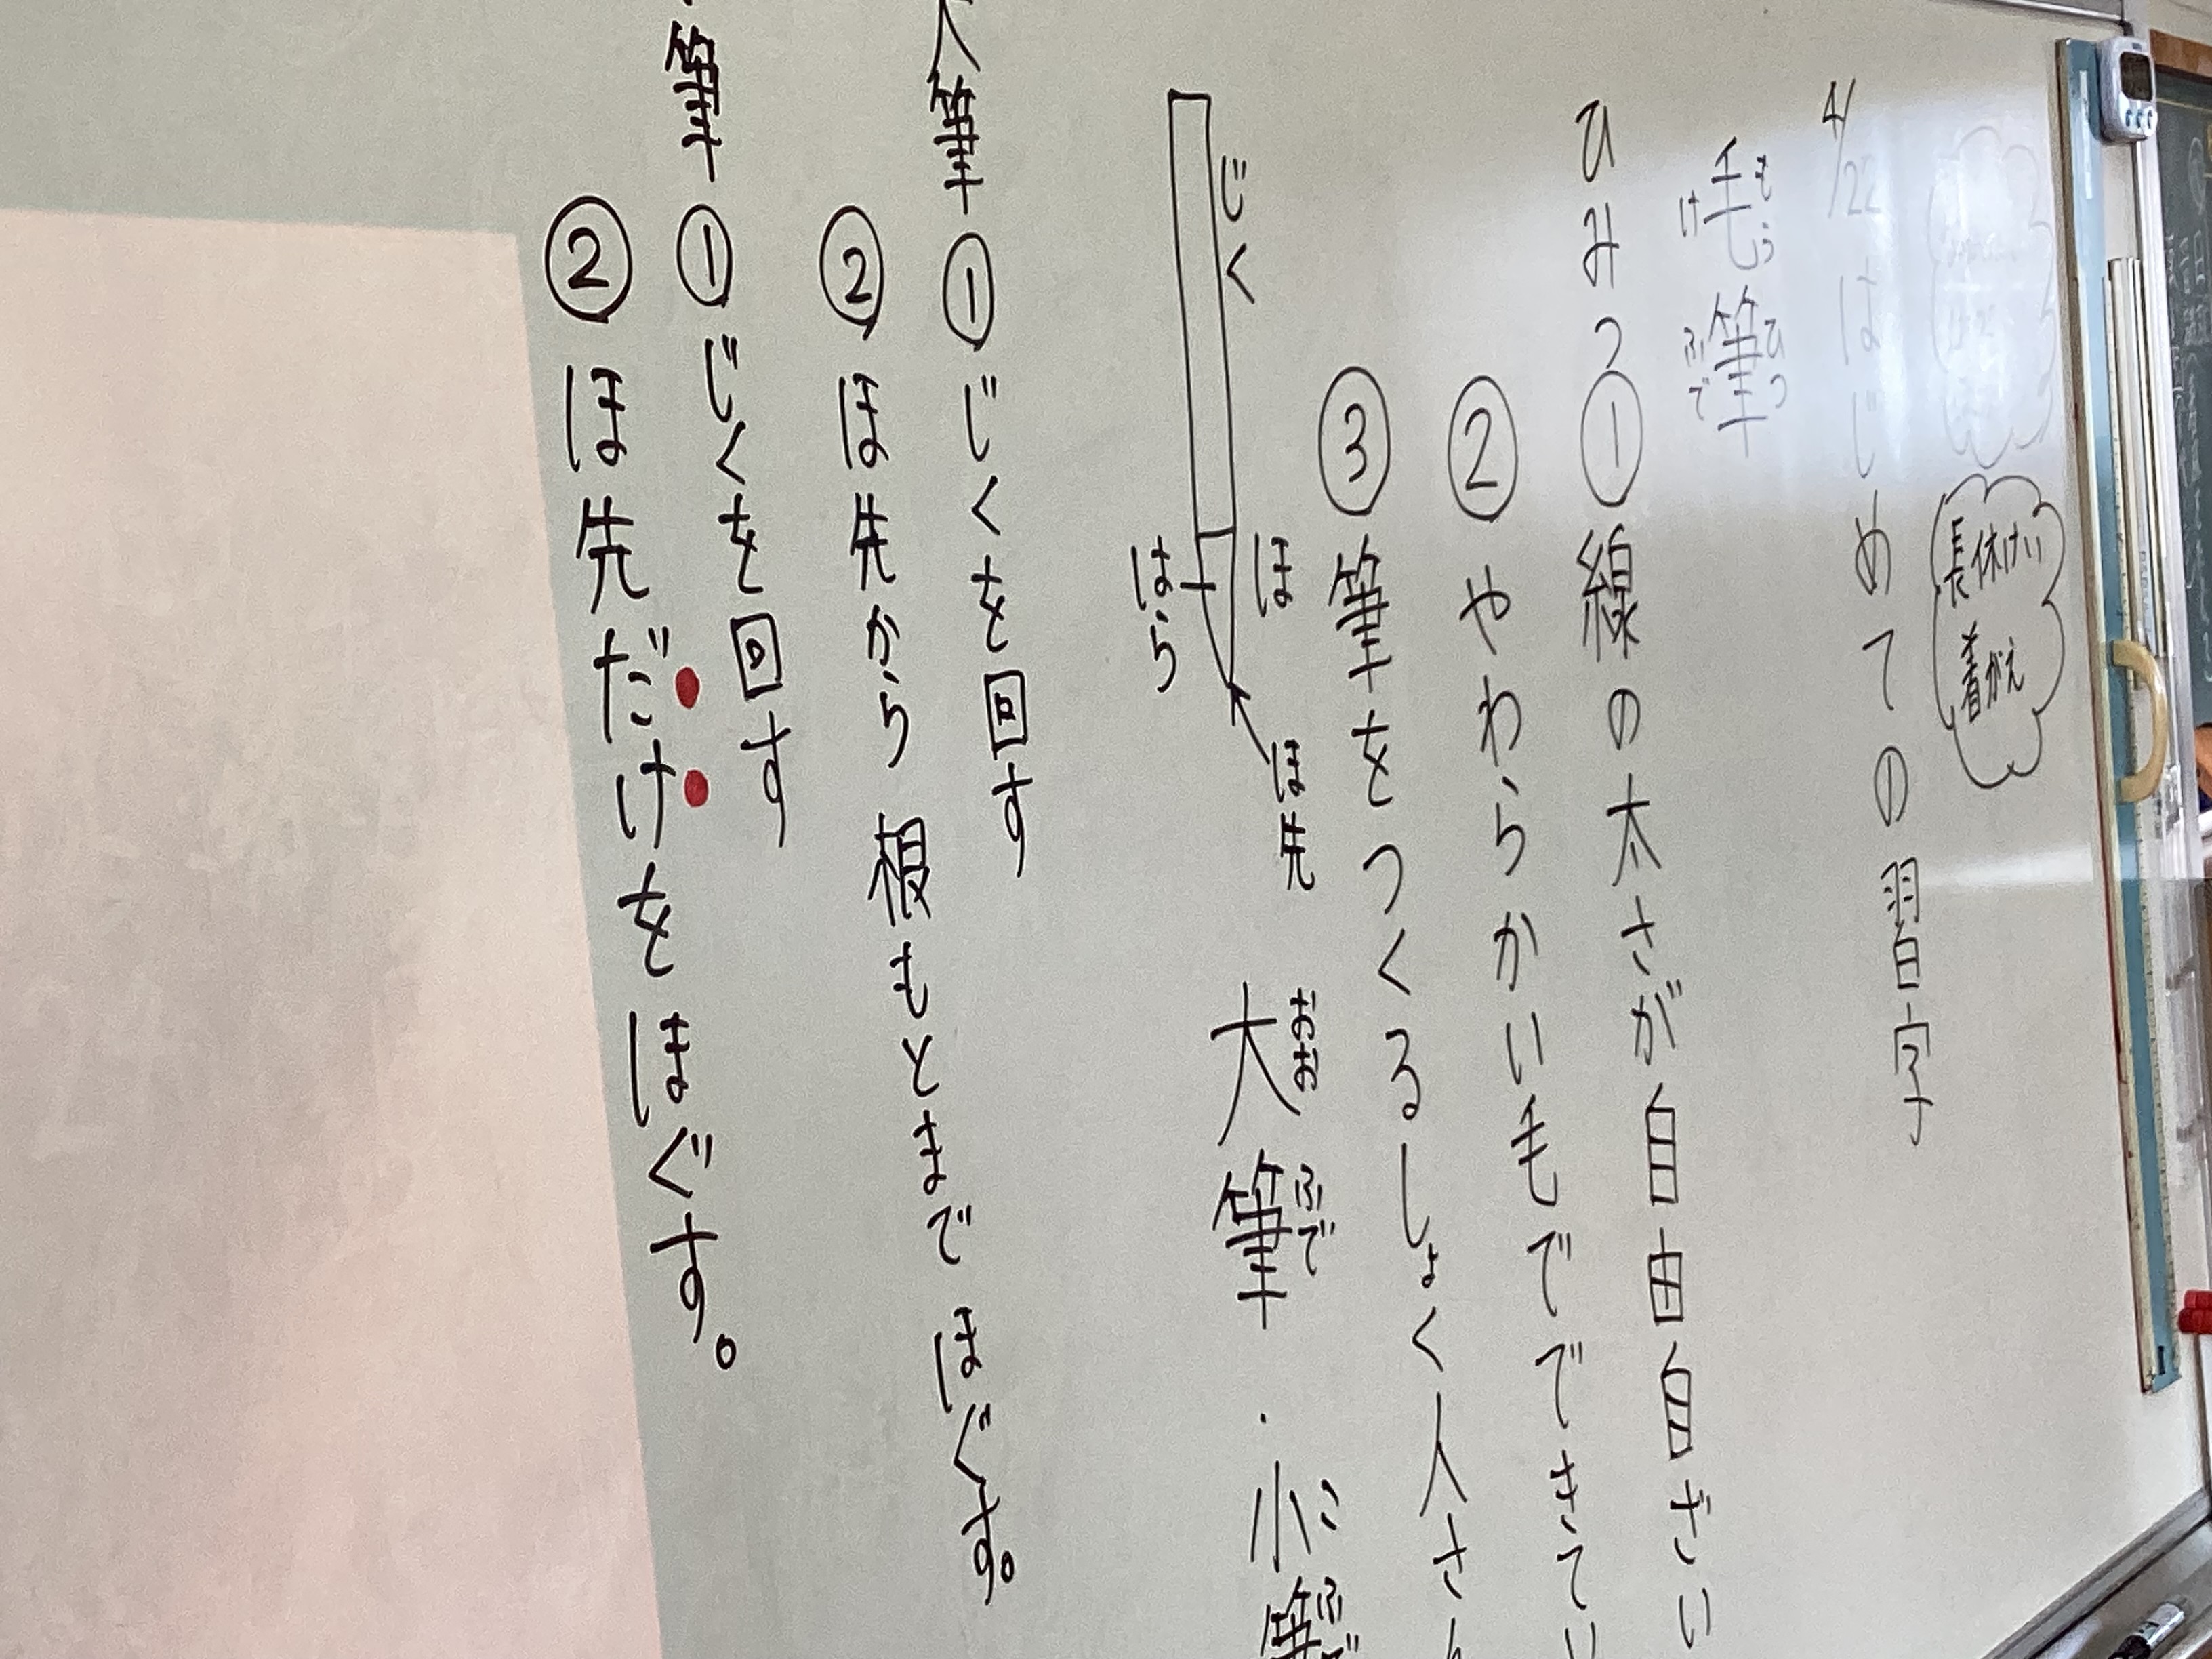 長休けい
着がえ
4/22 はじめての習字
毛筆
もうひつ
けふで
ひみつ ①線の太さが自由自ざい
②やわらかい毛でできてい
③筆をつくるしょく人さん
じく
ほ
はら
ほ先
大筆・小筆
おおふで こふで
大筆 ①じくを回す
②ほ先から根もとまでほぐす。
筆 ①じくを回す
②ほ先だけをほぐす。